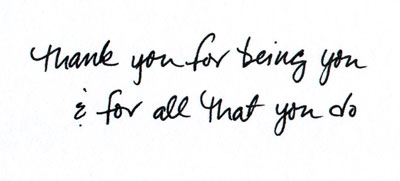 thank you for being you
& for all that you do